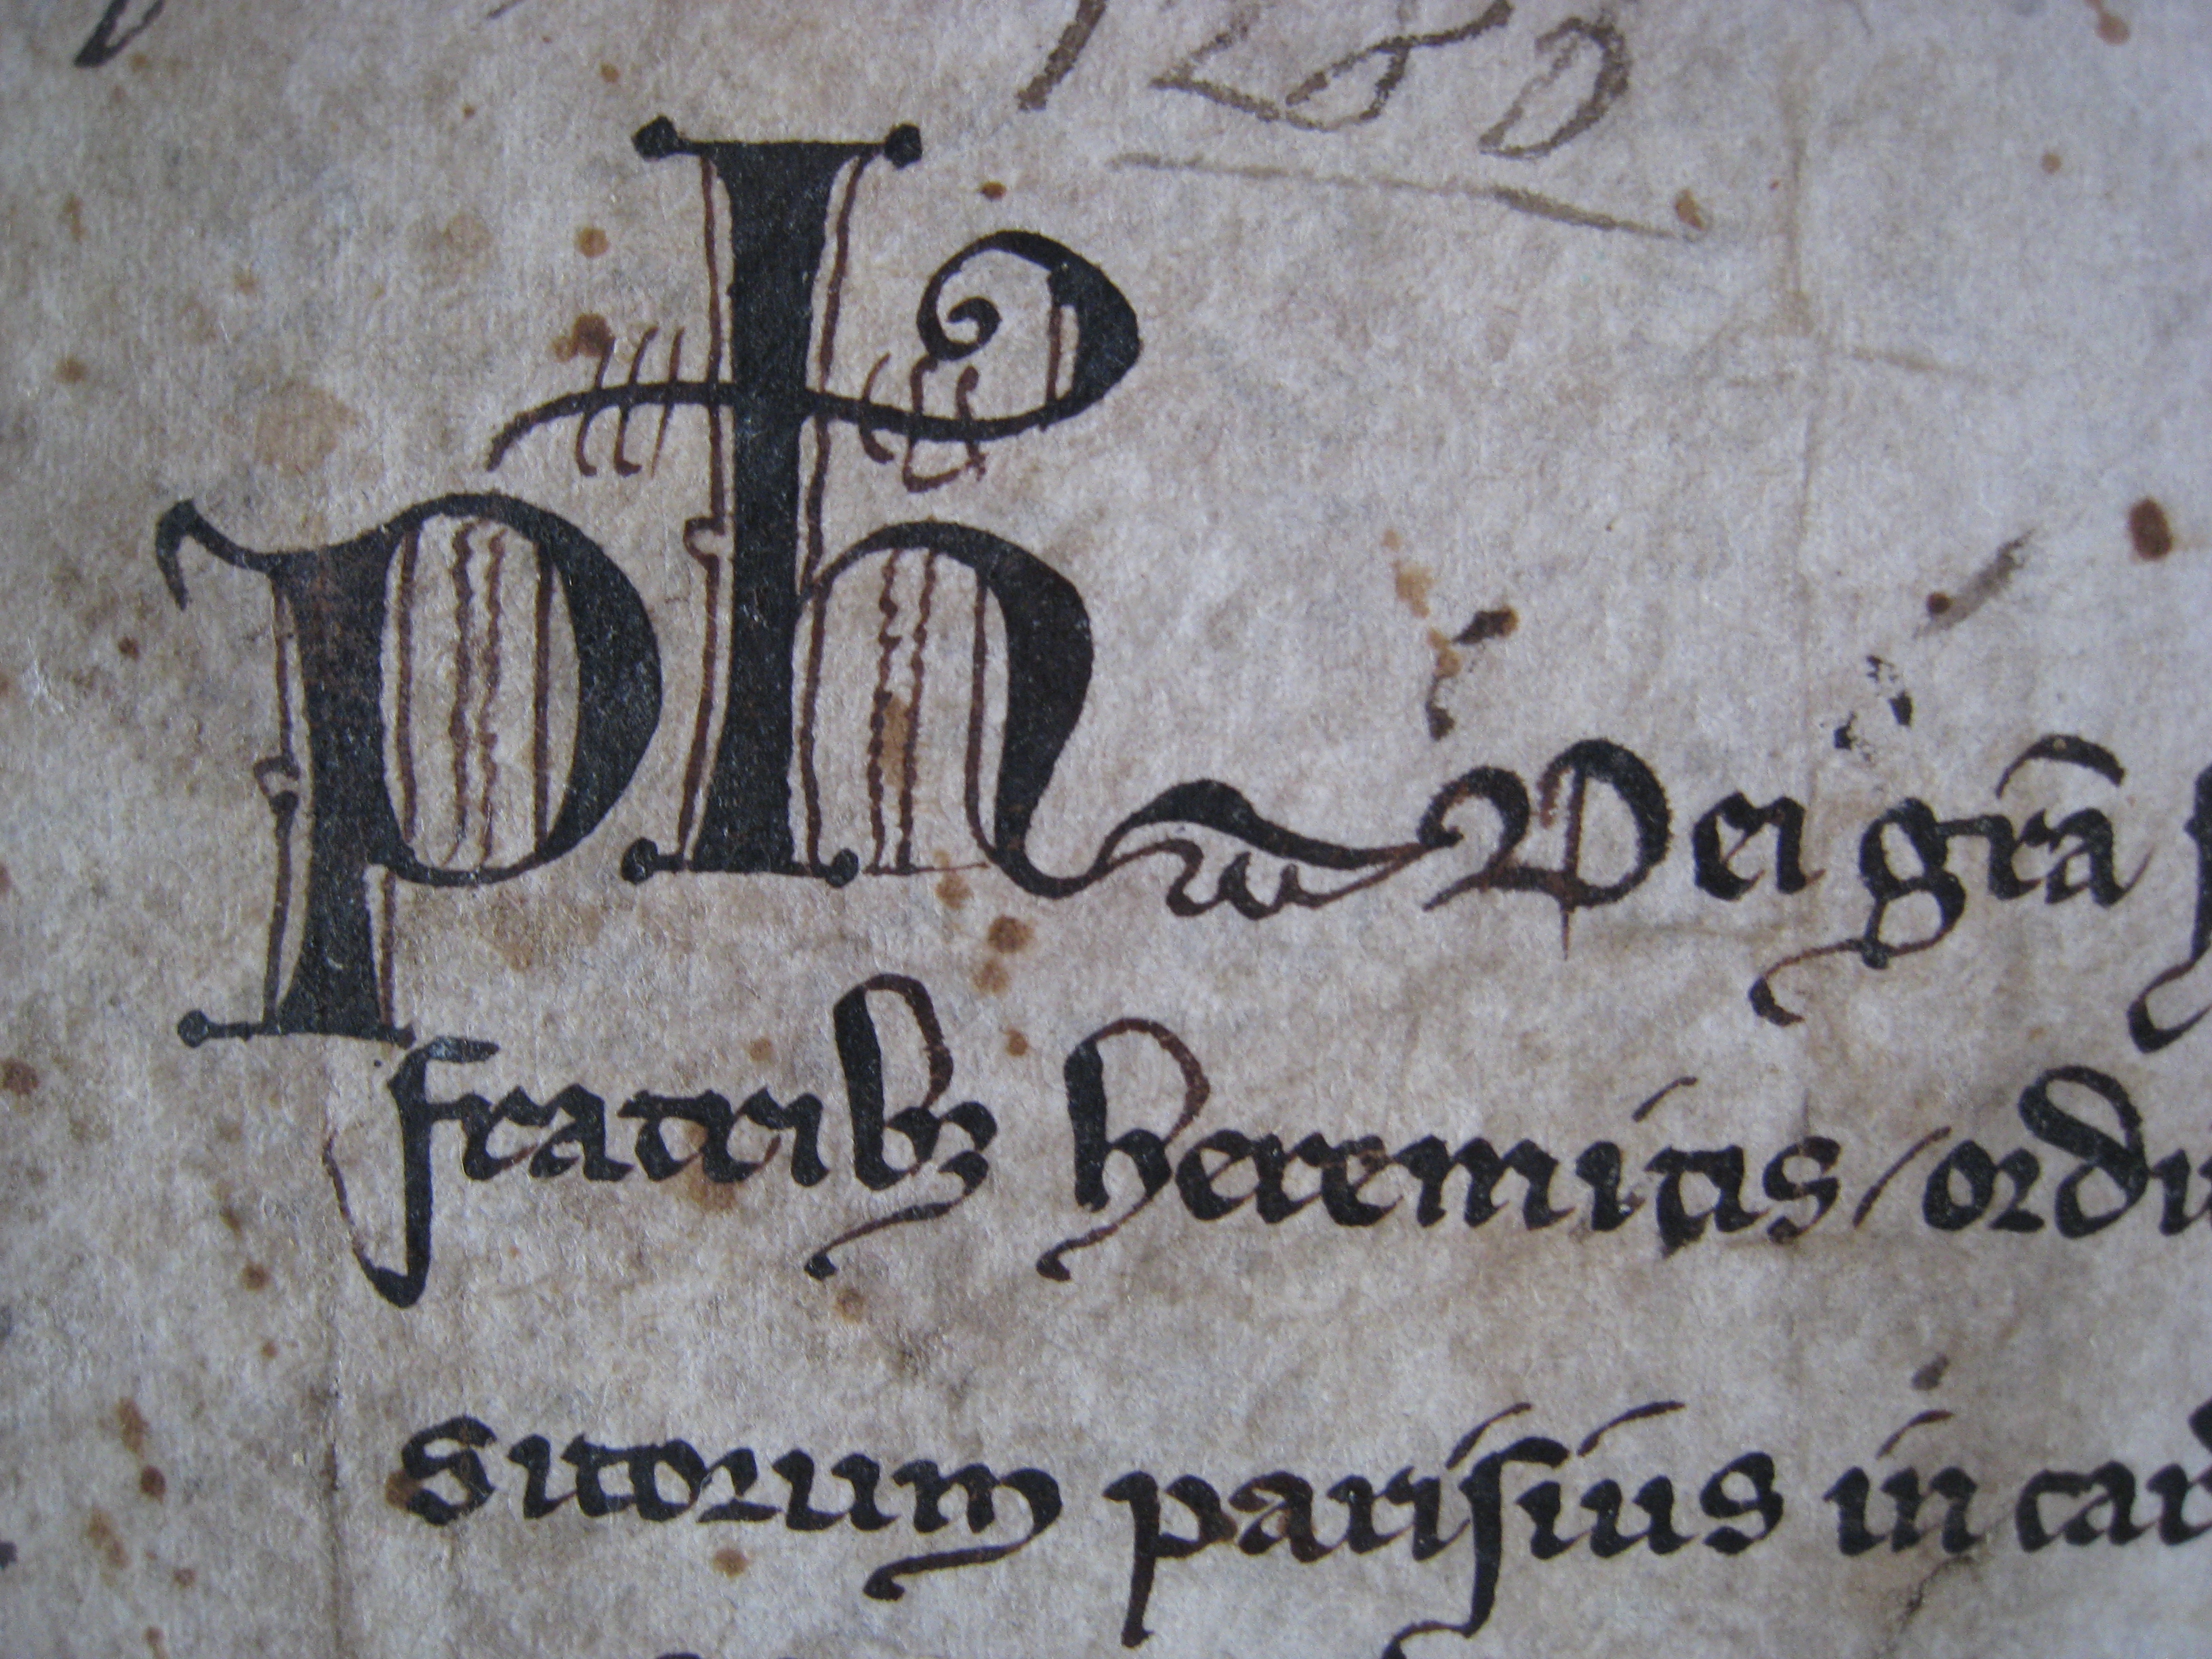 1260
Ph Dei gr̃a
fratribꝫ heremitis / ordi
sitorum parisius in car